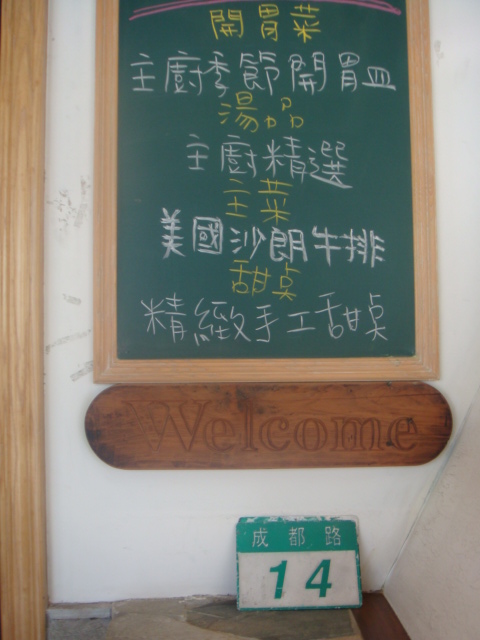 開胃菜
主廚季節開胃皿
湯品
主廚精選
主菜
美國沙朗牛排
甜桌
精緻手工甜桌
Welcome
成都路
14